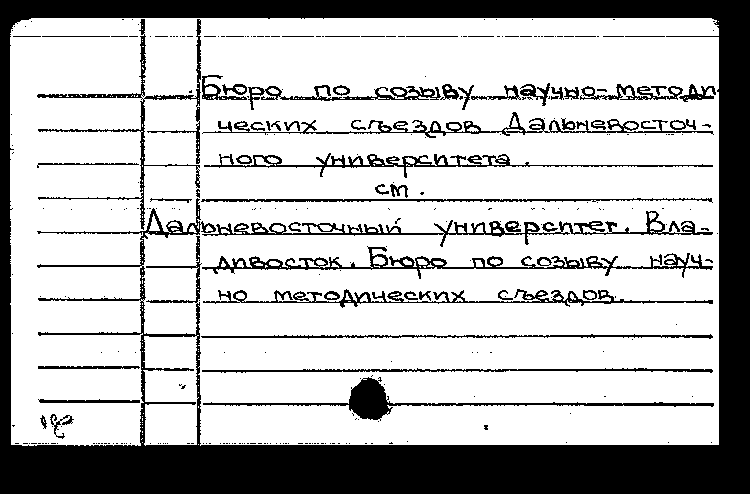 Бюро по созыву научно-методи-
ческих съездов Дальневосточ-
ного университета.
см.
Дальневосточный университет. Вла-
дивосток. Бюро по созыву науч-
но методических съездов.